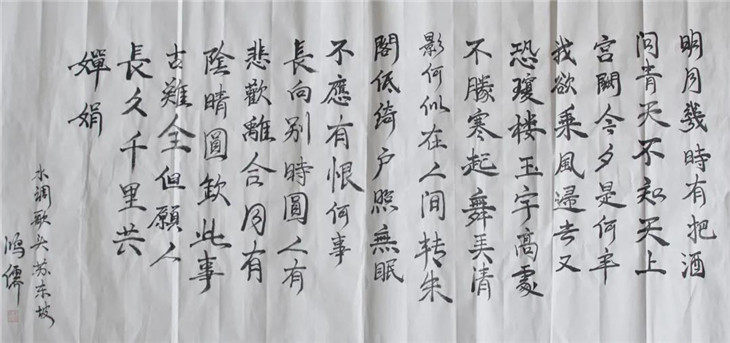 明月幾時有把酒
问青天不知天上
宫闕今夕是何年
我欲乘風歸去又
恐瓊楼玉宇高處
不勝寒起舞弄清
影何似在人间转朱
閣低绮户照無眠
不應有恨何事
長向别時圓人有
悲歡離合月有
陰晴圓缺此事
古難全但願人
長久千里共
嬋娟
水调歌头苏东坡
鴻儒